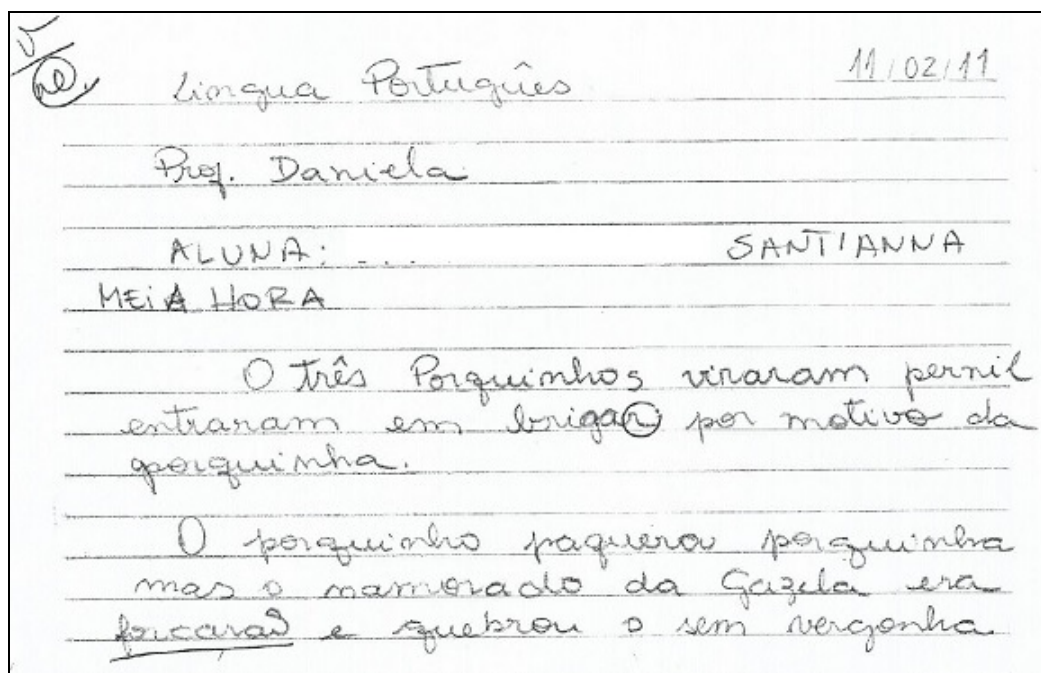 Lingua Português 11/02/11
Prof. Daniela
ALUNA: ... SANTIANNA
MEiA HORA
O três Porquinhos viraram pernil
entraram em brigar por motivo da
porquinha.
O porquinho paquerou porquinha
mas o namorado da Gazela era
e quebrou o sem vergonha